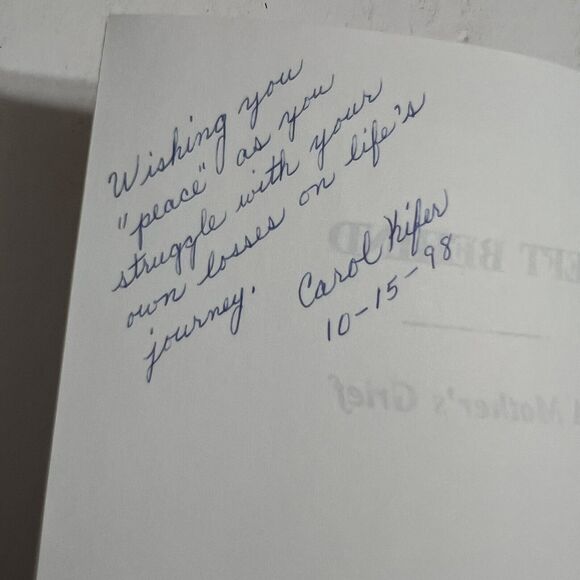 Wishing you
"peace" as you
struggle with your
own losses on life's
journey.
Carol Kifer
10-15-98
EFT BEHIND
Mother's Grief